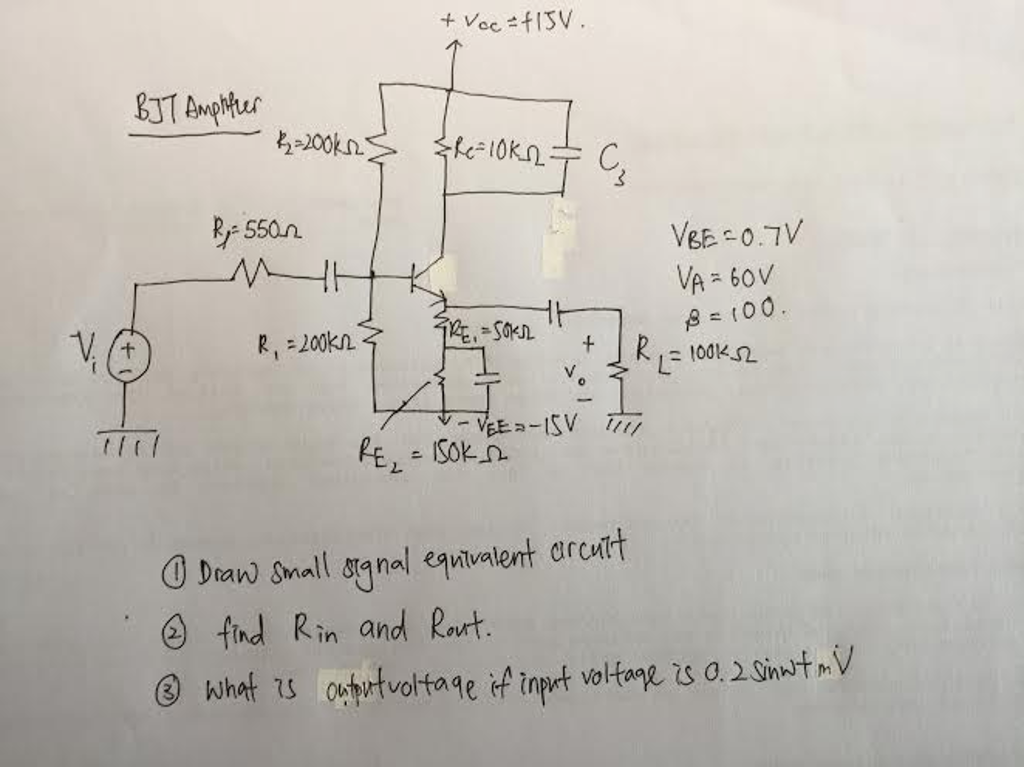 + Vcc = +15V.
BJT Amplifier
R2=200kΩ
Rc=10kΩ
C3
RI=550Ω
VBE=0.7V
VA=60V
β=100.
Vi
+
-
R1=200kΩ
RE1=50kΩ
+
Vo
-
RL=100kΩ
-VEE=-15V
RE2=150kΩ
① Draw small signal equivalent circuit
② find Rin and Rout.
③ What is output voltage if input voltage is 0.2 sinwt mV